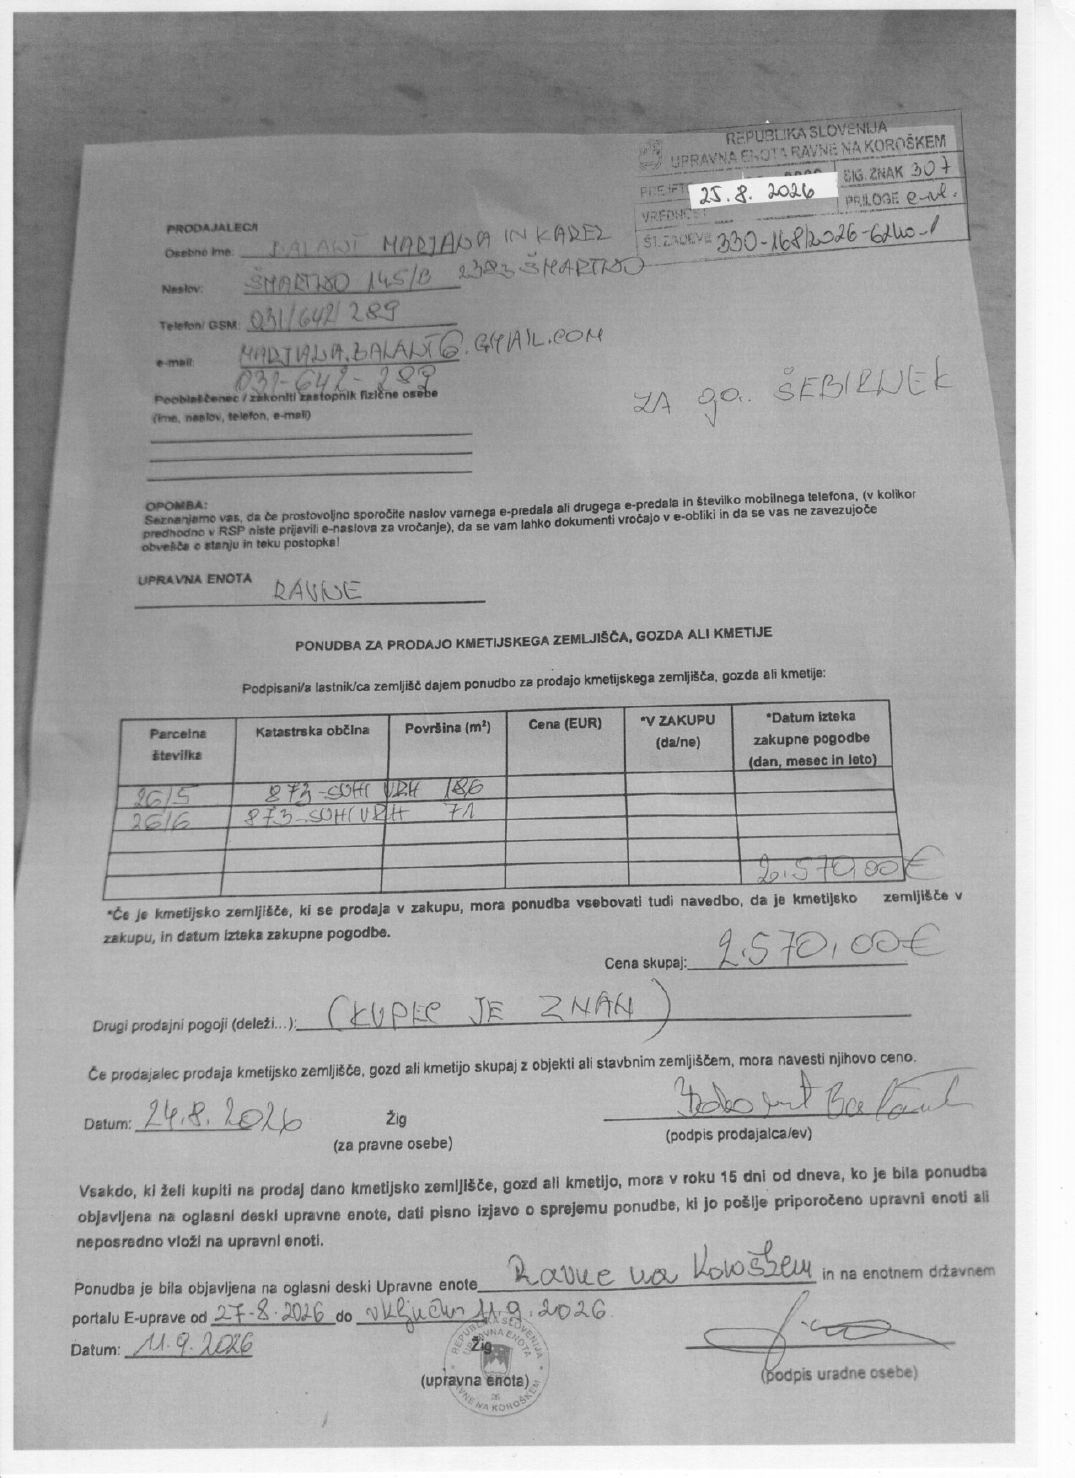 REPUBLIKA SLOVENIJA
UPRAVNA ENOTA RAVNE NA KOROŠKEM
PREJETO 25. 8. 2026 SIG. ZNAK 307
VREDNOST PRILOGE e-vl.
ŠT. ZADEVE 330-168/2026-6240-1
PRODAJALEC/I
Osebno ime: BALANT MARJANA IN KAREL
Naslov: ŠMARTNO 145/B 2383 ŠMARTNO
Telefon/ GSM: 031/642/289
e-mail: MARJANA.BALANT@.GMAIL.COM
031-642-289
Pooblaščenec / zakoniti zastopnik fizične osebe
(ime, naslov, telefon, e-mail)
ZA ga. ŠEBIRNEK
OPOMBA:
Seznanjamo vas, da če prostovoljno sporočite naslov varnega e-predala ali drugega e-predala in številko mobilnega telefona, (v kolikor
predhodno v RSP niste prijavili e-naslova za vročanje), da se vam lahko dokumenti vročajo v e-obliki in da se vas ne zavezujoče
obvešča o stanju in teku postopka!
UPRAVNA ENOTA RAVNE
PONUDBA ZA PRODAJO KMETIJSKEGA ZEMLJIŠČA, GOZDA ALI KMETIJE
Podpisani/a lastnik/ca zemljišč dajem ponudbo za prodajo kmetijskega zemljišča, gozda ali kmetije:
Parcelna številka Katastrska občina Površina (m²) Cena (EUR) *V ZAKUPU (da/ne) *Datum izteka zakupne pogodbe (dan, mesec in leto)
26/5 873-SUHI VRH 186
26/6 873-SUHI VRH 71
2.570,00€
*Če je kmetijsko zemljišče, ki se prodaja v zakupu, mora ponudba vsebovati tudi navedbo, da je kmetijsko zemljišče v
zakupu, in datum izteka zakupne pogodbe.
Cena skupaj: 2.570,00€
Drugi prodajni pogoji (deleži...): (KUPEC JE ZNAN)
Če prodajalec prodaja kmetijsko zemljišče, gozd ali kmetijo skupaj z objekti ali stavbnim zemljiščem, mora navesti njihovo ceno.
Datum: 24.8.2026 Žig
(za pravne osebe) (podpis prodajalca/ev)
Vsakdo, ki želi kupiti na prodaj dano kmetijsko zemljišče, gozd ali kmetijo, mora v roku 15 dni od dneva, ko je bila ponudba
objavljena na oglasni deski upravne enote, dati pisno izjavo o sprejemu ponudbe, ki jo pošlje priporočeno upravni enoti ali
neposredno vloži na upravni enoti.
Ponudba je bila objavljena na oglasni deski Upravne enote Ravne na Koroškem in na enotnem državnem
portalu E-uprave od 27-8-2026 do vključno 11.9.2026.
Datum: 11.9.2026 Žig
(upravna enota) (podpis uradne osebe)
REPUBLIKA SLOVENIJA
UPRAVNA ENOTA
RAVNE NA KOROŠKEM
26